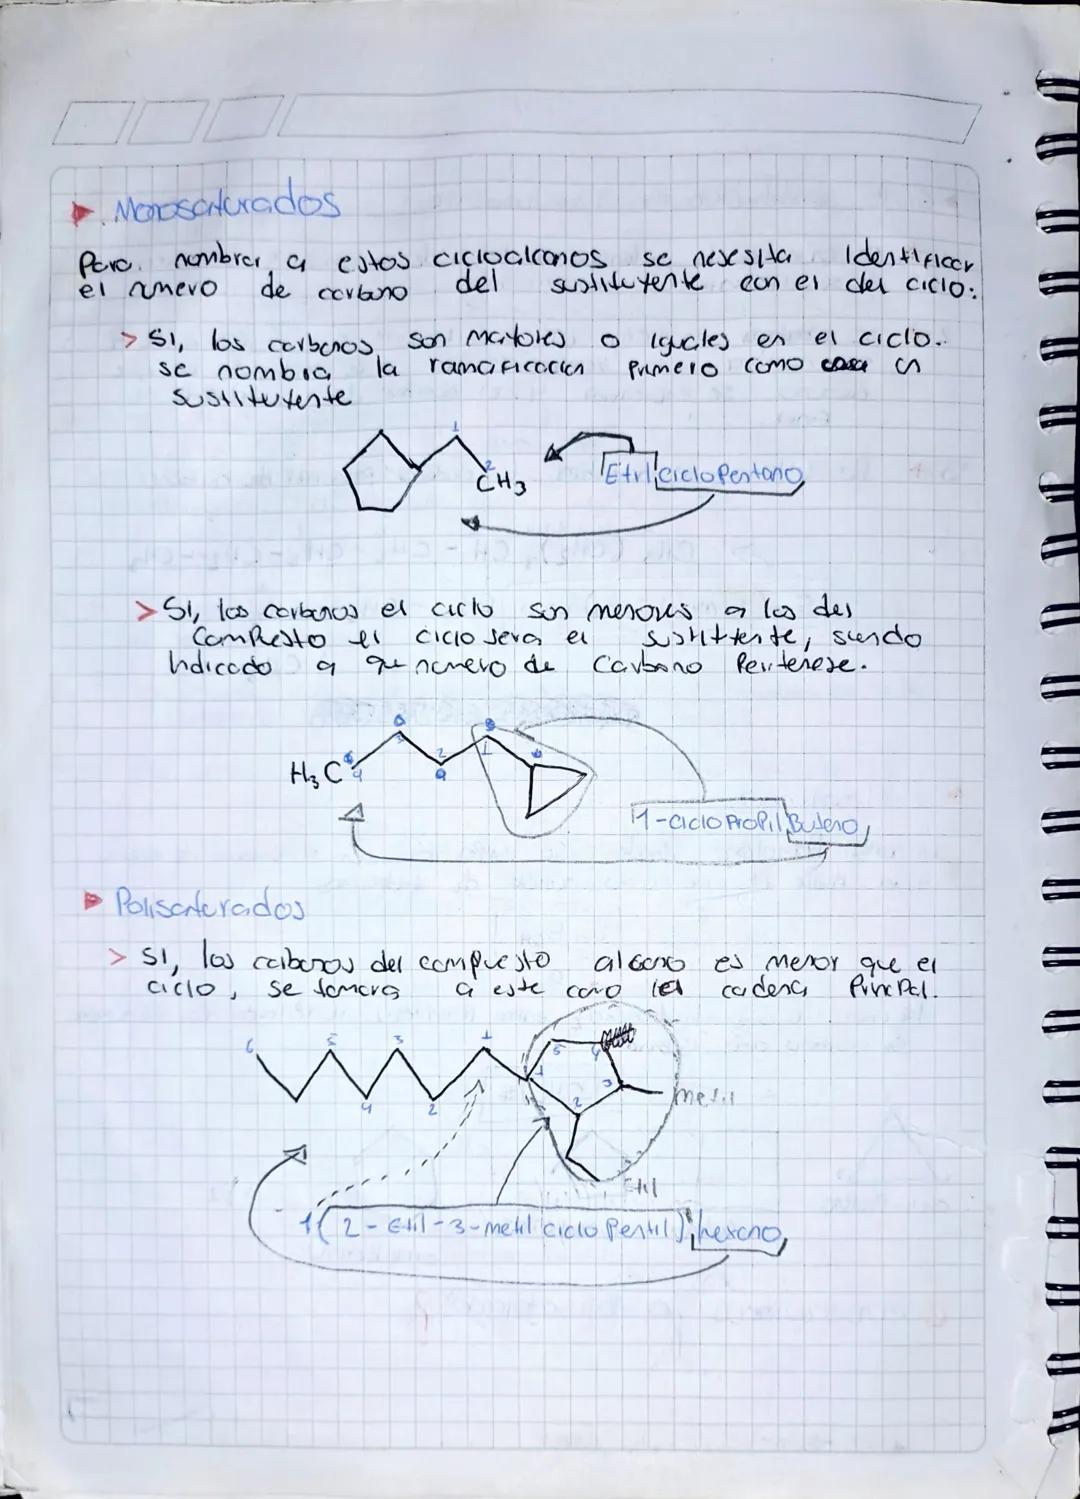 Monosaturados
Para nombrar a estos cicloalcanos se nesesita Identificar
el numero de carbono del sustituyente con el del ciclo:
> Si, los carbonos son mayores o iguales en el ciclo.
se nombra la ramaficacion Primero como un
sustituyente
1
2
CH3
Etil ciclo Pentano
> Si, los carbonos el ciclo son menores a los del
Compuesto el ciclo sera el sustituyente, siendo
Indicado a que numero de Carbono Pertenese.
3
2
1
H3C 4
1-ciclo Propil Butano
Polisaturados
> Si, los carbonos del compuesto alcano es menor que el
ciclo, se tomara a este como la cadena Principal.
6 5 3 1
4 2
5 4
1 3
2
metil
Etil
1(2-Etil-3-metil ciclo Pentil) hexano